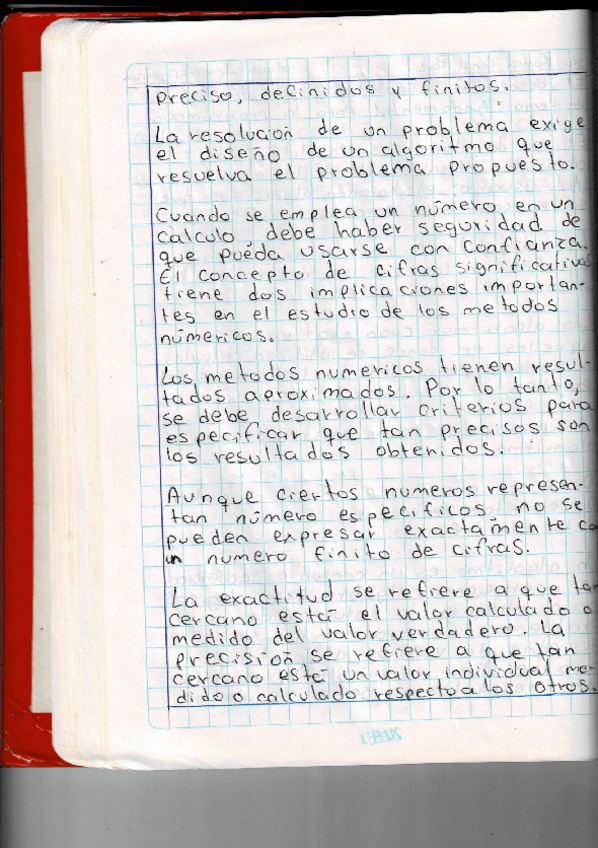 preciso, definidos y finitos.
La resolución de un problema exige
el diseño de un algoritmo que
resuelva el problema propuesto.
Cuando se emplea un número en un
calculo debe haber seguridad de
que puéda usarse con confianza.
El concepto de cifras significativas
tiene dos implicaciones importan-
tes en el estudio de los metodos
númericos.
Los metodos numericos tienen resul-
tados aproximados. Por lo tanto,
se debe desarrollar criterios para
especificar que tan precisos son
los resultados obtenidos.
Aunque ciertos numeros represen-
tan número especificos no se
pueden expresar exactamente co
un numero finito de cifras.
La exactitud se refiere a que tan
cercano está el valor calculado o
medido del valor verdadero. La
precisión se refiere a que tan
cercano está un valor individual me-
dido o calculado respecto a los otros.